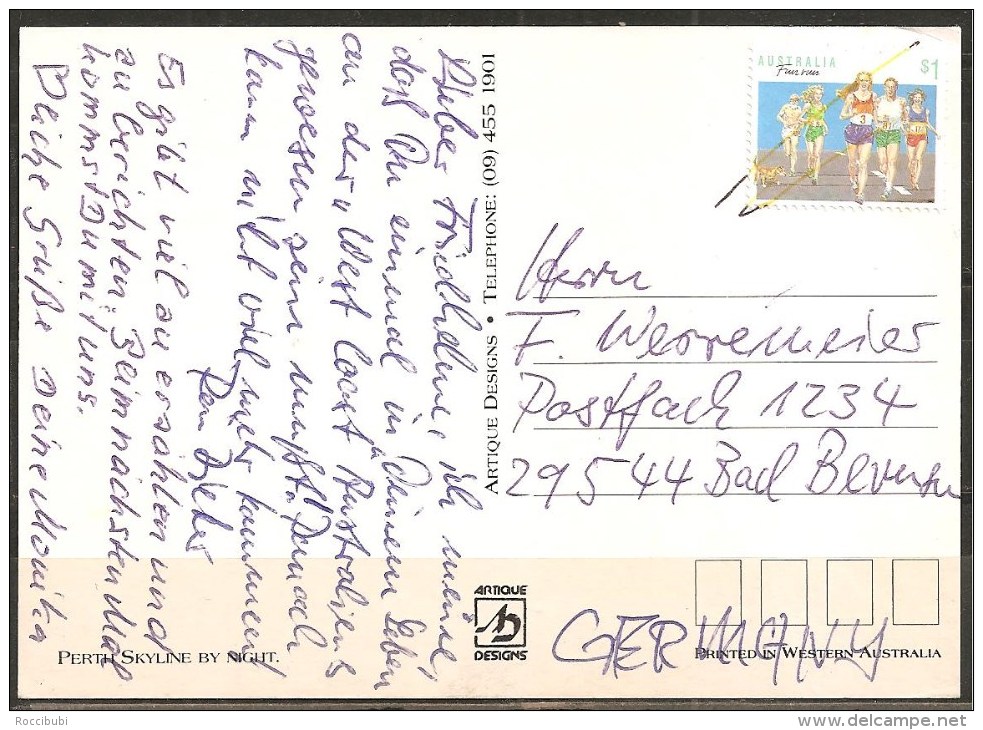 AUSTRALIA
Fun run
$1
Lieber Friedhelm, ich meine,
daß Du einmal in Deinem Leben
an der West Coast Australiens
gewesen sein mußt. Danach
kann nicht viel mehr kommen!
Dein
Es gibt viel zu erzählen und
zu berichten. Beim nächsten Mal
kommst Du mit uns.
Beiche Grüße Deine Monika
ARTIQUE DESIGNS • TELEPHONE: (09) 455 1901
Herrn
F. Werremeier
Postfach 1234
29544 Bad Bevensen
GERMANY
ARTIQUE
DESIGNS
PERTH SKYLINE BY NIGHT.
PRINTED IN WESTERN AUSTRALIA
Roccibubi
www.delcampe.net